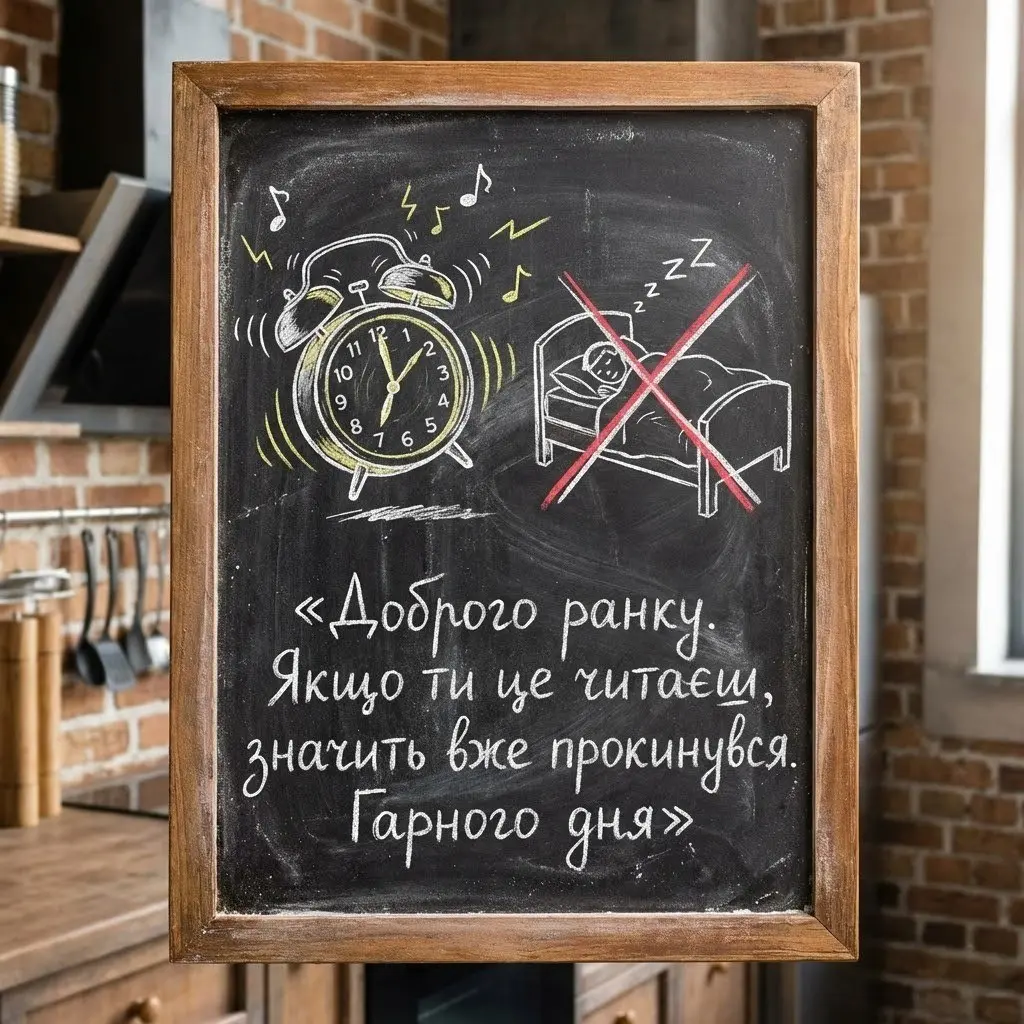 12
1
2
3
4
5
6
7
8
9
10
11
z z z z z
«Доброго ранку.
Якщо ти це читаєш,
значить вже прокинувся.
Гарного дня»